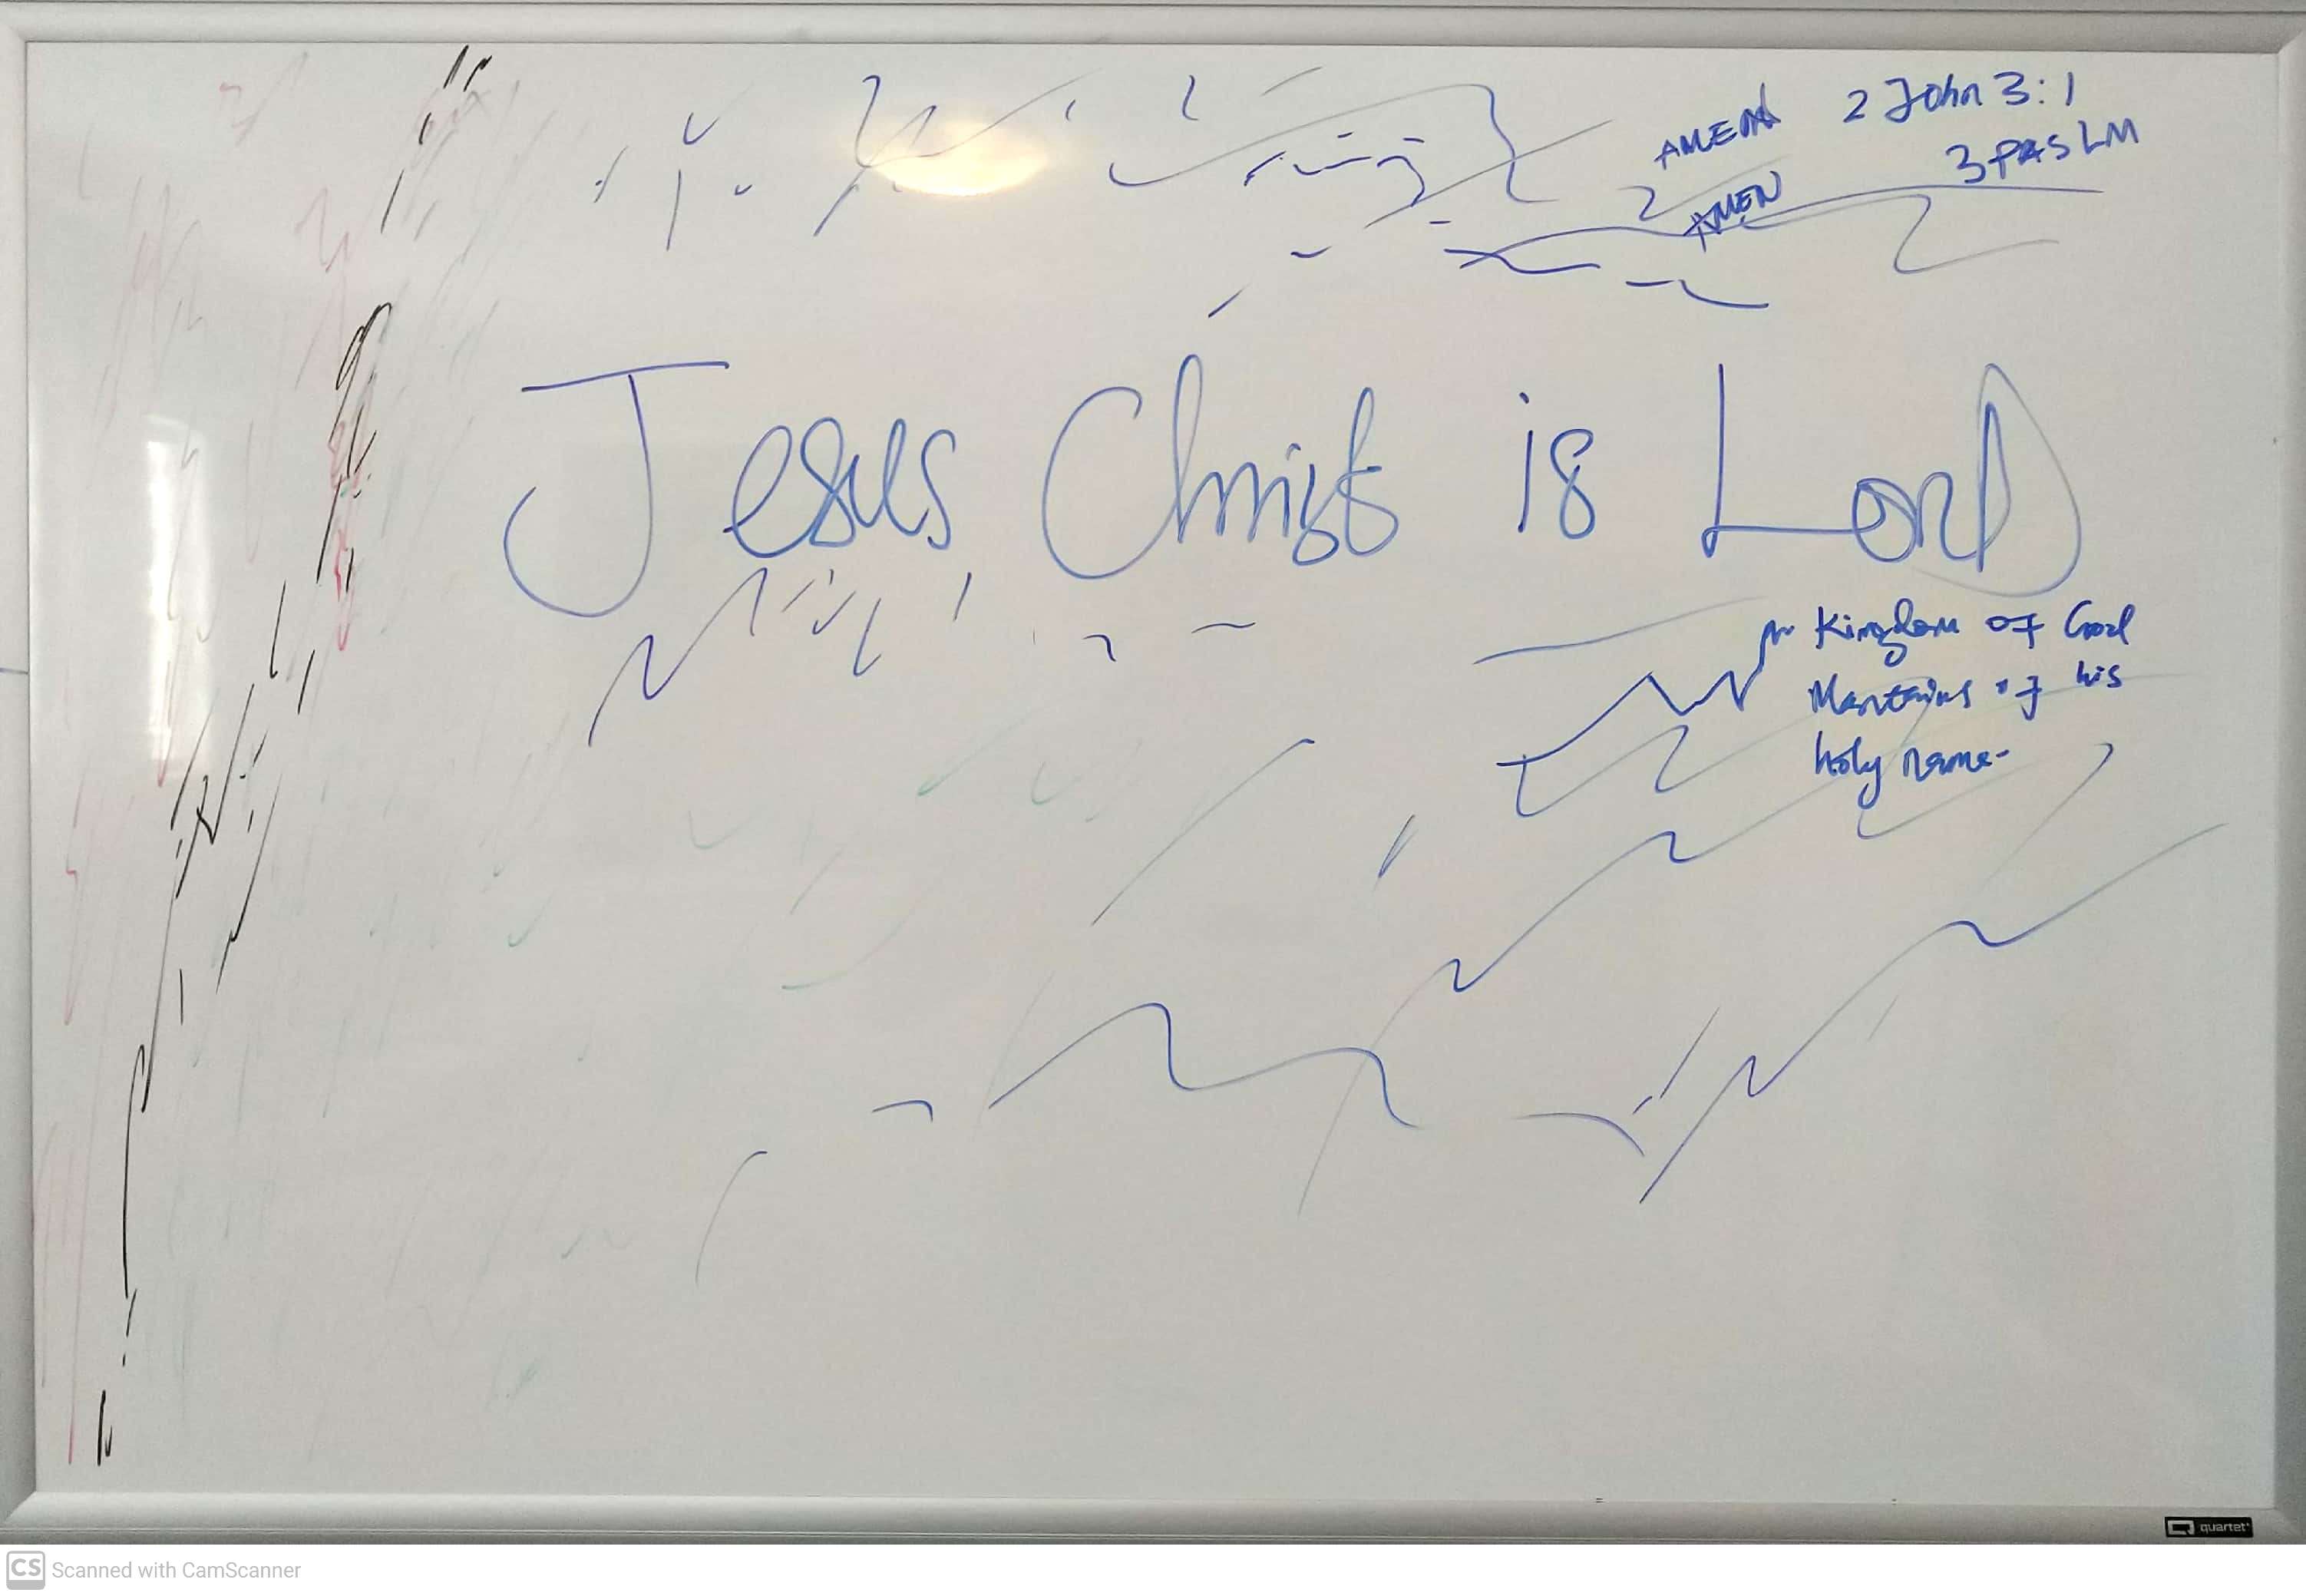 2 John 3:1
AMEN
3 PASLM
AMEN
Jesus Christ is Lord
Kingdom of God
of his
holy name-
quartet
CS Scanned with CamScanner